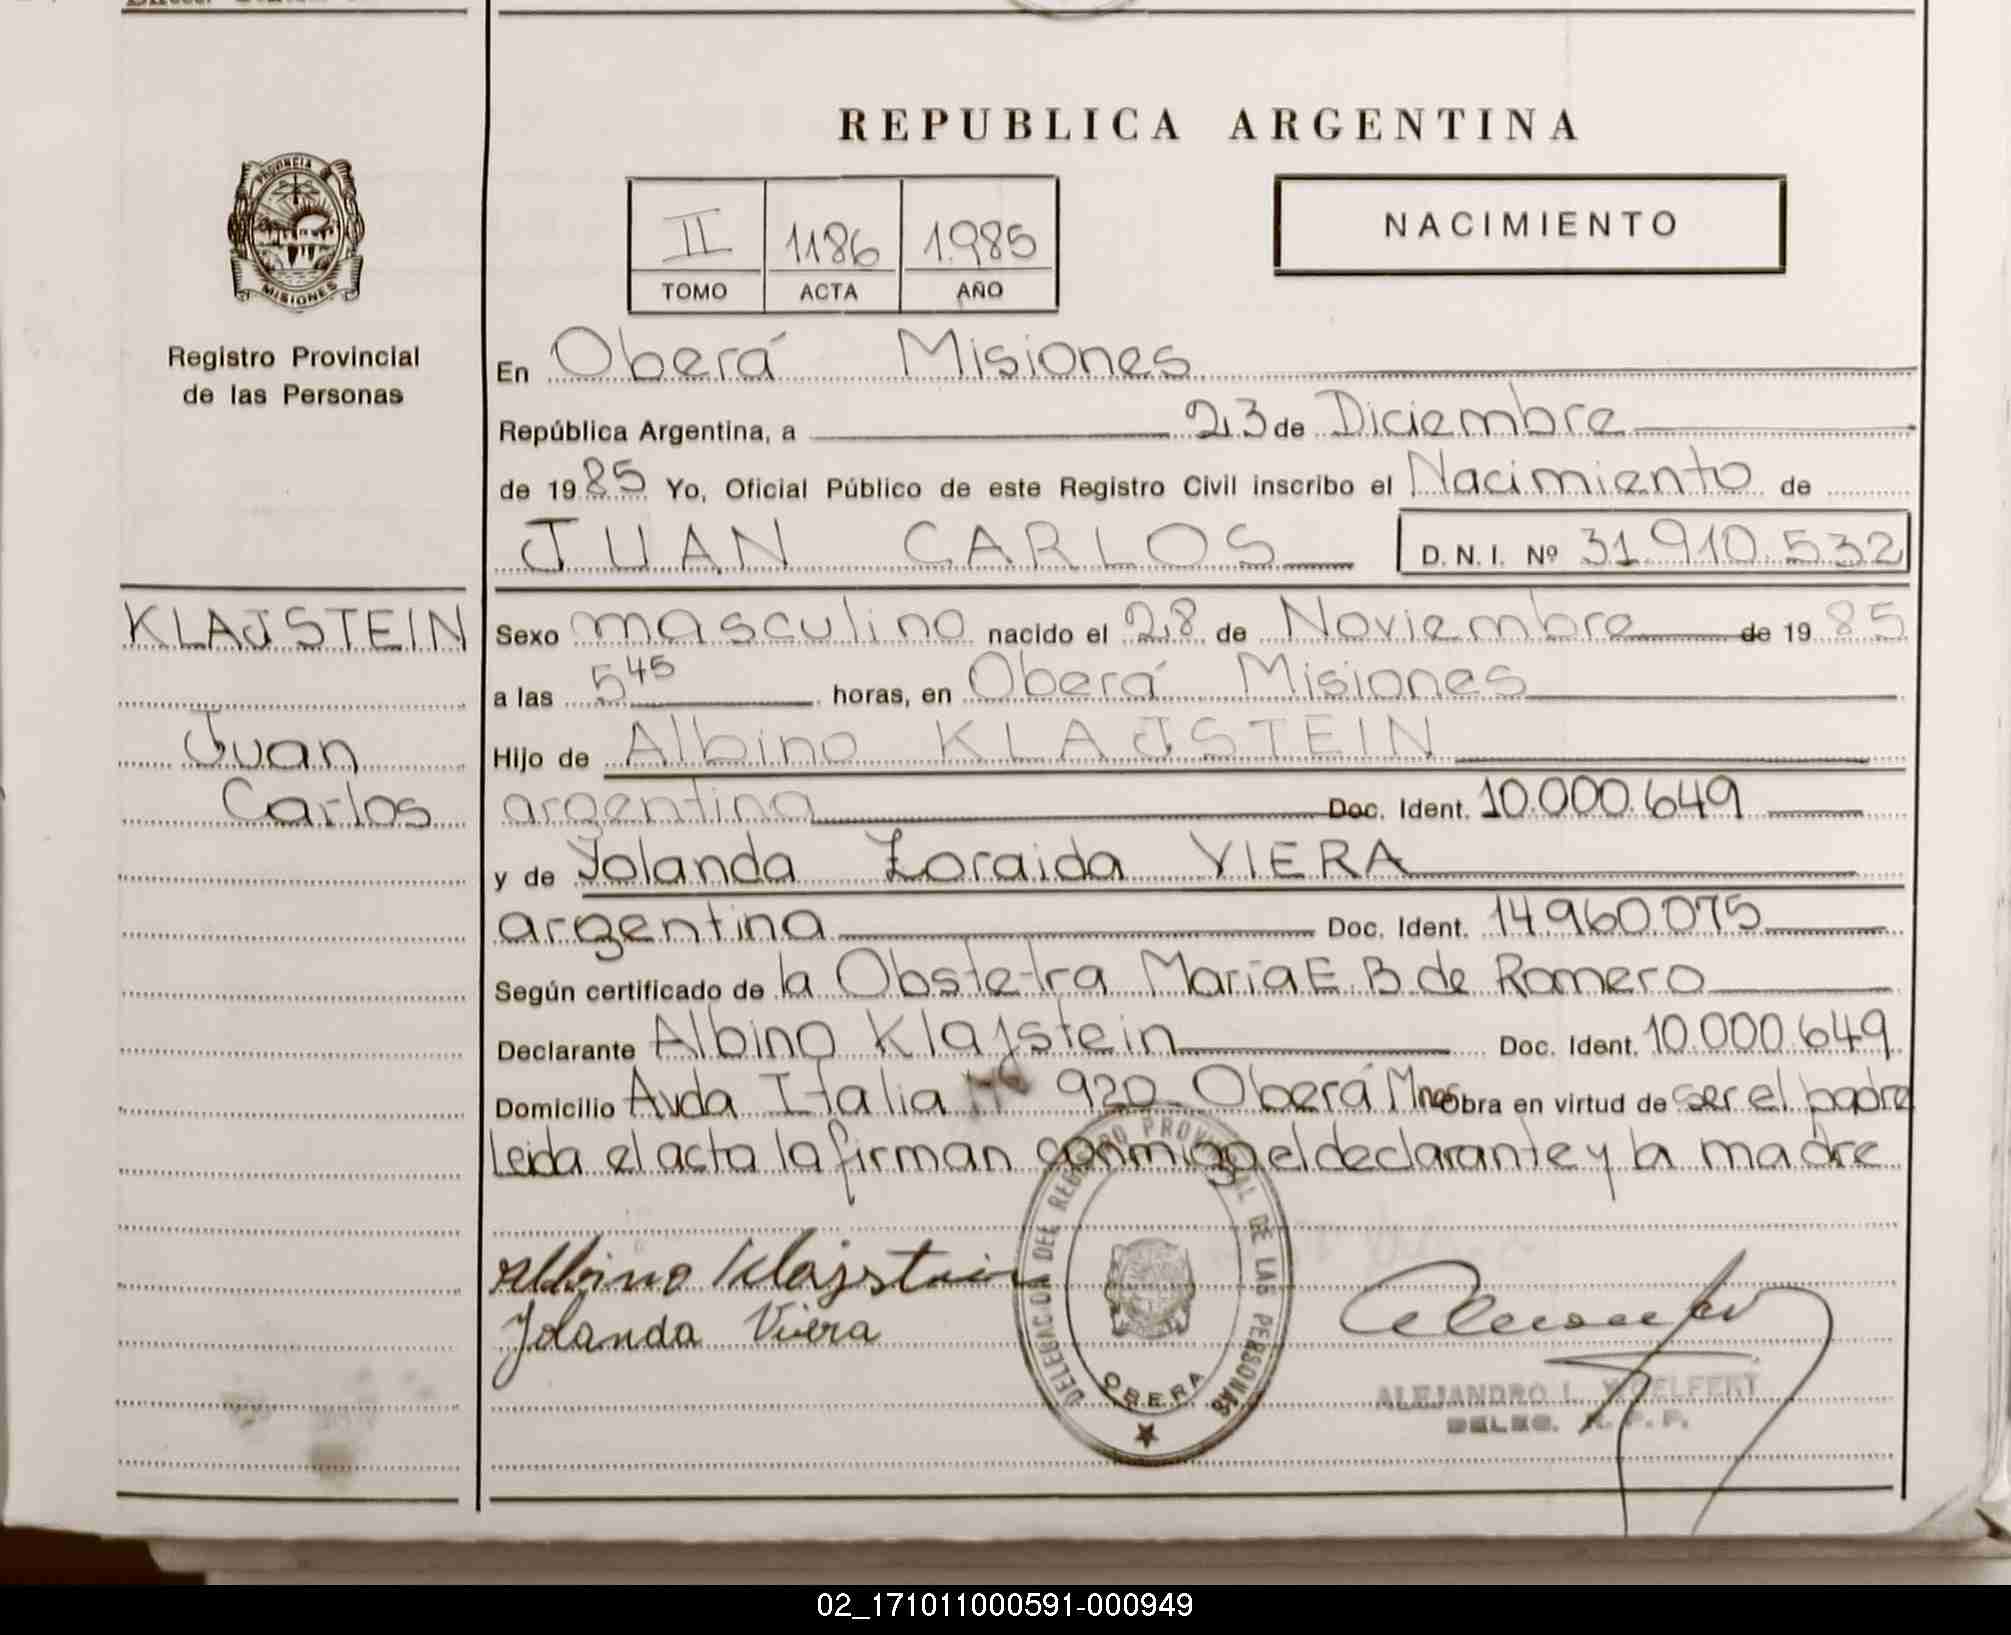 REPUBLICA ARGENTINA
PROVINCIA
MISIONES
Registro Provincial
de las Personas
II 1186 1985
TOMO ACTA AÑO
NACIMIENTO
En Oberá Misiones
República Argentina, a 23 de Diciembre
de 1985 Yo, Oficial Público de este Registro Civil inscribo el Nacimiento de
JUAN CARLOS D. N. I. Nº 31.910.532
KLAJSTEIN
Juan
Carlos
Sexo masculino nacido el 28 de Noviembre de 1985
a las 5 45 horas, en Oberá Misiones
Hijo de Albino KLAJSTEIN
argentina Doc. Ident. 10.000.649
y de Yolanda Zoraida VIERA
argentina Doc. Ident. 14.960.075
Según certificado de la Obstetra María E. B. de Romero
Declarante Albino Klajstein Doc. Ident. 10.000.649
Domicilio Avda Italia Nº 920 - Oberá Mnes Obra en virtud de ser el padre
leida el acta la firman conmigo el declarante y la madre
Albino Klajstein
Yolanda Viera
DELEGACION DEL REGISTRO PROVINCIAL DE LAS PERSONAS
OBERA
ALEJANDRO L. WOELFERT
DELEG. R. P. P.
02_171011000591-000949